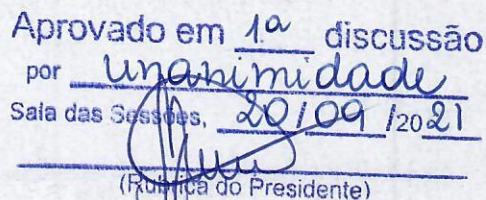 Aprovado em 1ª discussão
por unanimidade
Sala das Sessões, 20/09/2021
(Rubrica do Presidente)